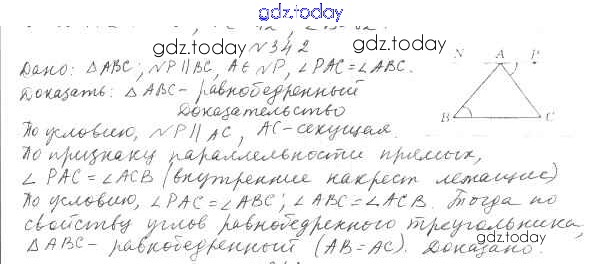 gdz.today
gdz.today №342 gdz.today
Дано: △ABC; NP∥BC, A∈NP, ∠PAC=∠ABC.
Доказать: △ABC - равнобедренный
Доказательство
По условию, NP∥AC, AC-секущая.
По признаку параллельности прямых,
∠PAC=∠ACB (внутренние накрест лежащие)
По условию, ∠PAC=∠ABC; ∠ABC=∠ACB. Тогда по
свойству углов равнобедренного треугольника,
△ABC- равнобедренный (AB=AC). Доказано.
N A P
B C
gdz.today
gdz.today
gdz.today